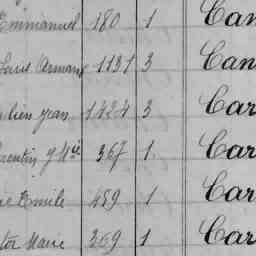 Emmanuel 180 1 Can
Louis Armand 1131 3 Can
Jean 1424 3 Car
Corentin J Mie 367 1 Car
Emile 489 1 Car
Marie 369 1 Car